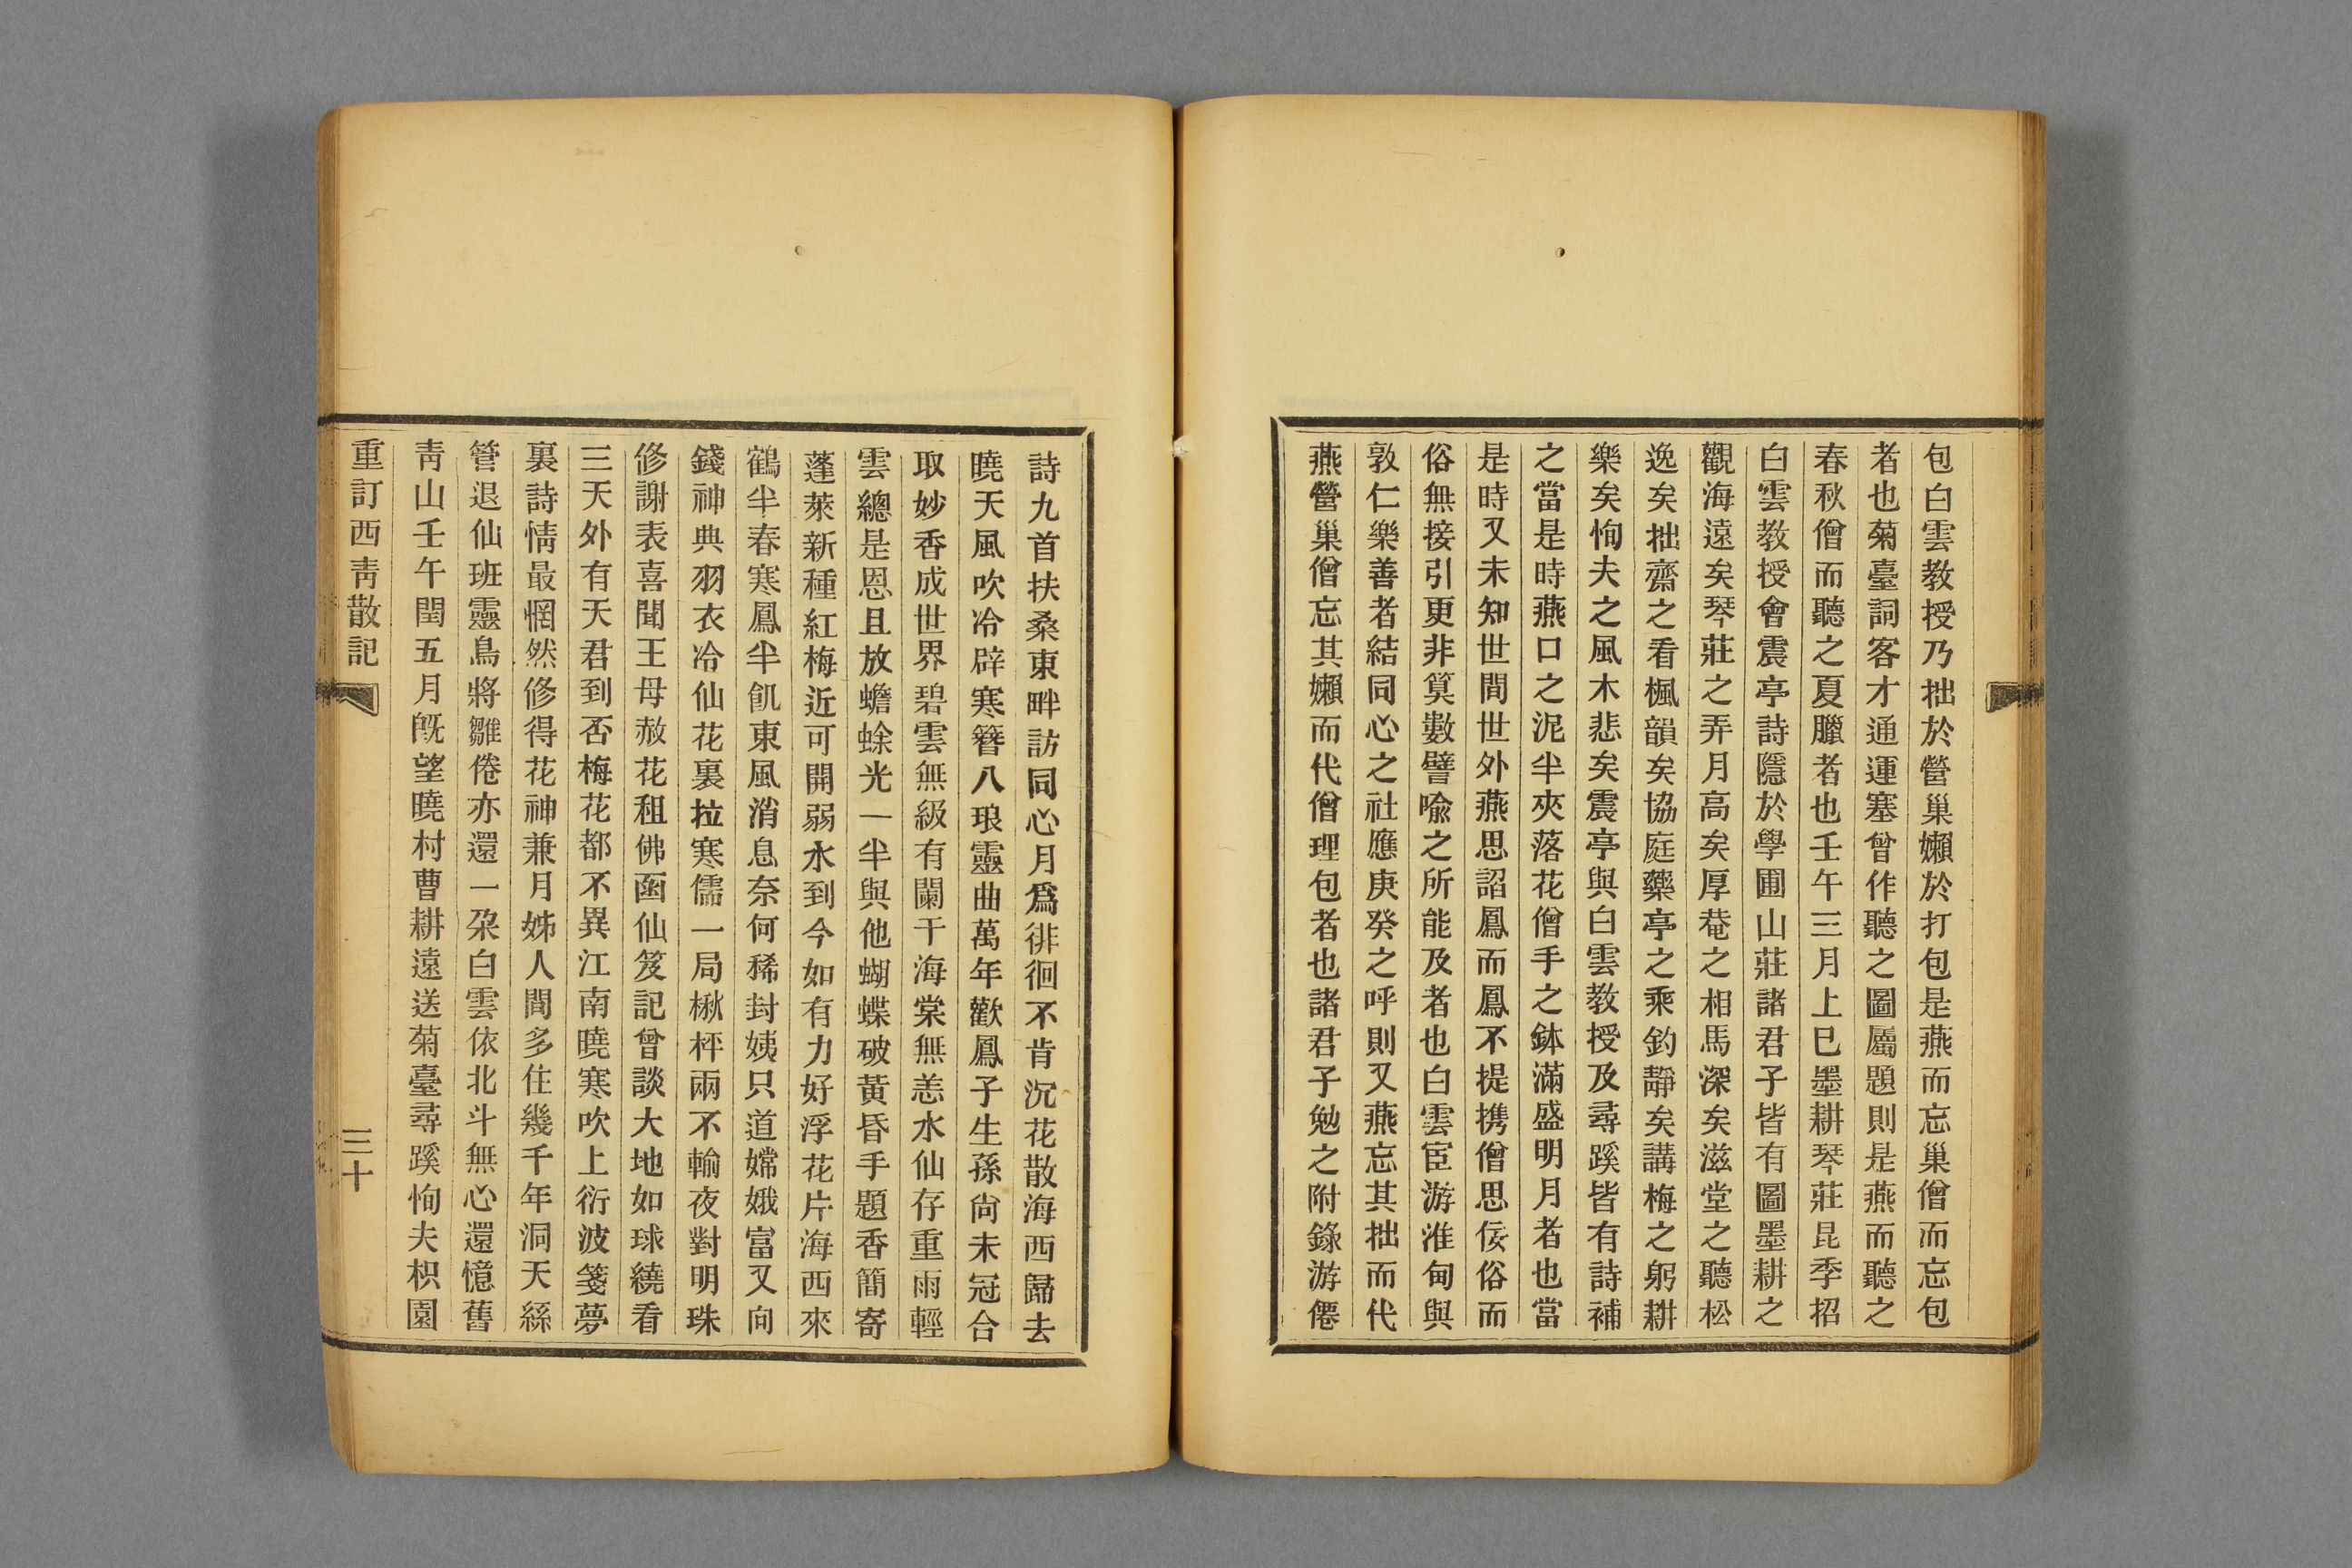 包白雲教授乃拙於營巢嬾於打包是燕而忘巢僧而忘包
者也菊臺詞客才通運塞曾作聽之圖屬題則是燕而聽之
春秋僧而聽之夏臘者也壬午三月上巳墨耕琴莊昆季招
白雲教授會震亭詩隱於學圃山莊諸君子皆有圖墨耕之
觀海遠矣琴莊之弄月高矣厚菴之相馬深矣滋堂之聽松
逸矣拙齋之看楓韻矣協庭藥亭之乘釣靜矣講梅之躬耕
樂矣恂夫之風木悲矣震亭與白雲教授及尋蹊皆有詩補
之當是時燕口之泥半夾落花僧手之鉢滿盛明月者也當
是時又未知世間世外燕思詔鳳而鳳不提携僧思佞俗而
俗無接引更非算數譬喩之所能及者也白雲宦游淮甸與
敦仁樂善者結同心之社應庚癸之呼則又燕忘其拙而代
燕營巢僧忘其嬾而代僧理包者也諸君子勉之附錄游僊
詩九首扶桑東畔訪同心月爲徘徊不肯沉花散海西歸去
曉天風吹冷辟寒簪八琅靈曲萬年歡鳳子生孫尙未冠合
取妙香成世界碧雲無級有闌干海棠無恙水仙存重雨輕
雲總是恩且放蟾蜍光一半與他蝴蝶破黃昏手題香簡寄
蓬萊新種紅梅近可開弱水到今如有力好浮花片海西來
鶴半春寒鳳半飢東風消息奈何稀封姨只道嫦娥富又向
錢神典羽衣冷仙花裏拉寒儒一局楸枰兩不輸夜對明珠
修謝表喜聞王母赦花租佛函仙笈記曾談大地如球繞看
三天外有天君到否梅花都不異江南曉寒吹上衍波箋夢
裏詩情最惘然修得花神兼月姊人間多住幾千年洞天綵
管退仙班靈鳥將雛倦亦還一朶白雲依北斗無心還憶舊
靑山壬午閏五月旣望曉村曹耕遠送菊臺尋蹊恂夫枳園
重訂西靑散記
三十